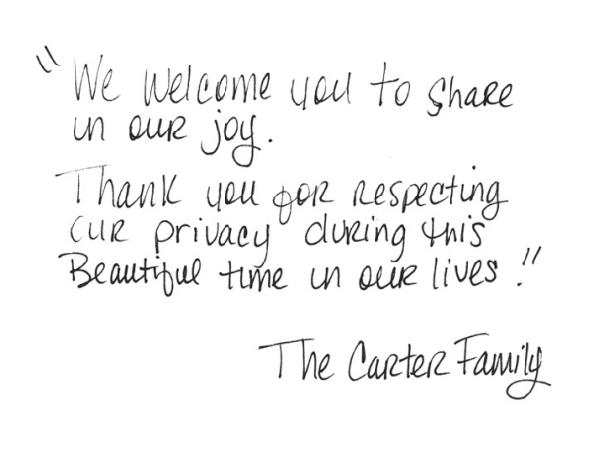 "We welcome you to share
in our joy.
Thank you for respecting
our privacy during this
Beautiful time in our lives."
The Carter Family